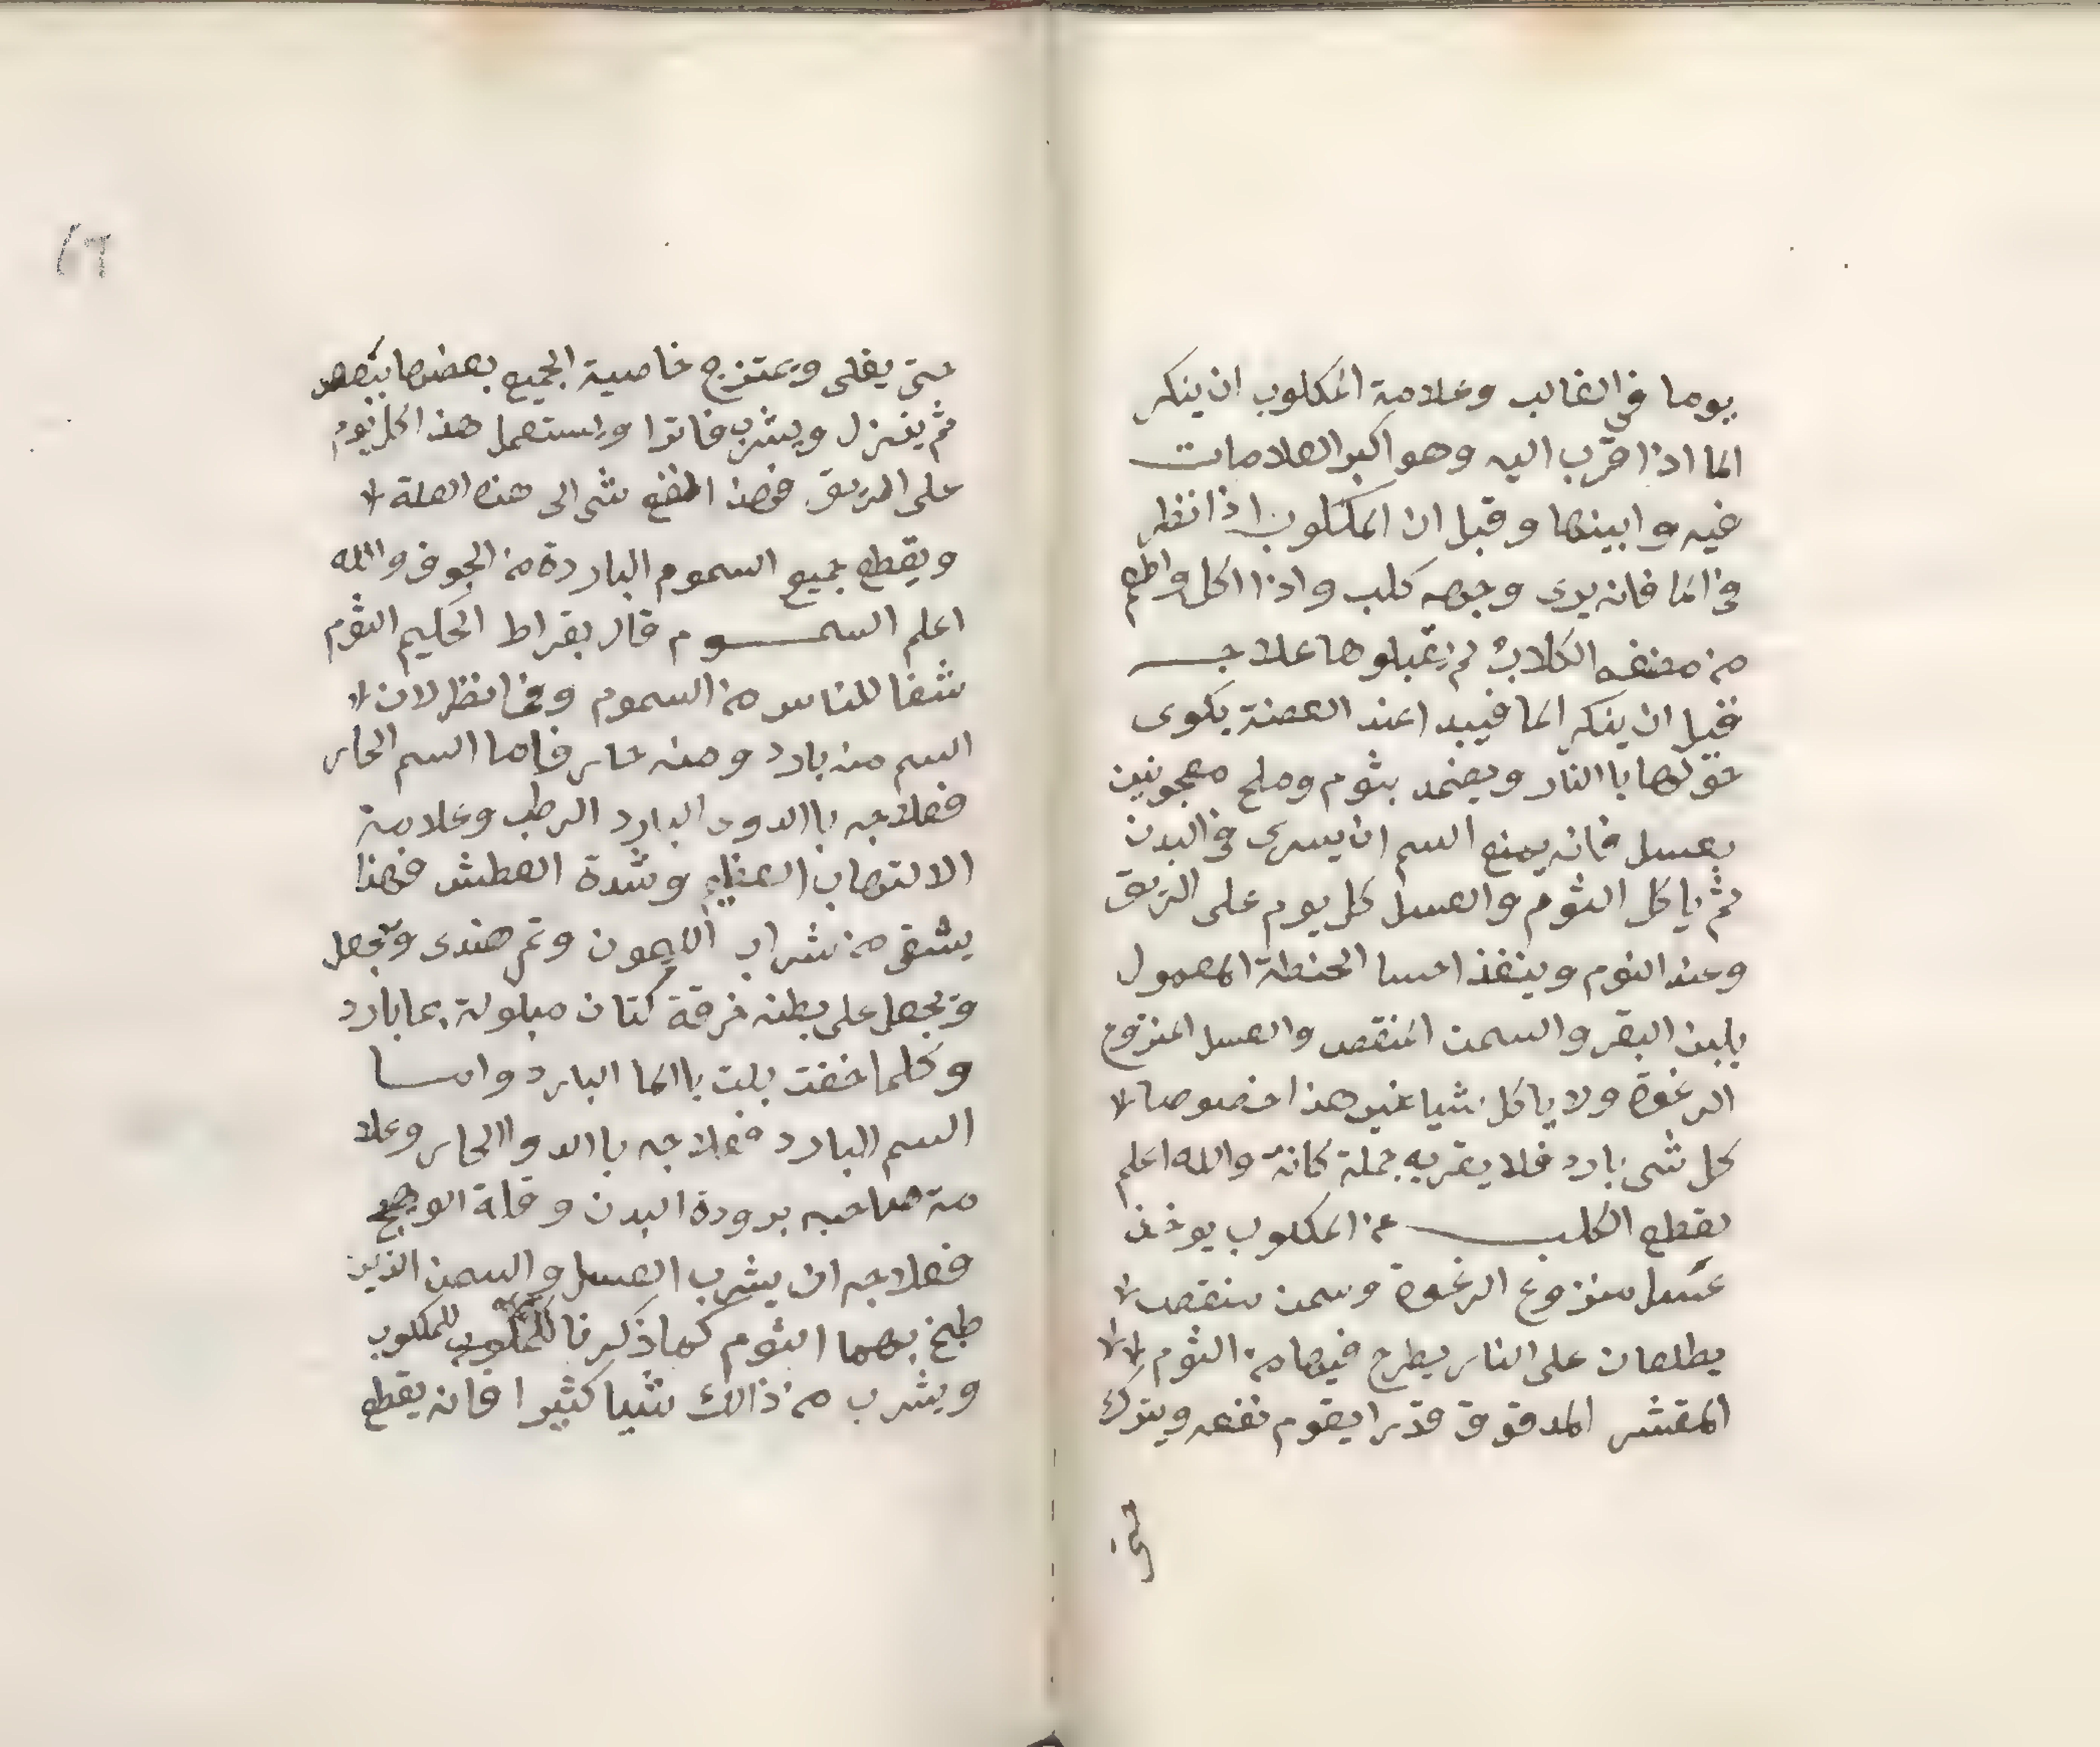 يوما في الغالب وعلامة المكلوب ان ينكر
الما اذا قرّب اليه وهو اكبر العلامات
فيه وابينها وقيل ان المكلوب اذا نظر
في الما فانه يرى وجهه كلب واذا اكل واطعم
من مضغه الكلاب لم يقبلوها علاجــه
فقبل ان ينكر الما فيبد اعند العضة يكوى
حولها باالنار ويضمد بثوم وملح معجونين
بعسل فانه يمنع السم ان يسرى في البدن
ثم ياكل الثوم والعسل كل يوم على الريق
وعند النوم ويتغذ احسا الحنطة المعمول
بلبن البقر والسمن المنقص والعسل المنزوع
الرغوة ولا ياكل شيا غير هذا خصوصا
كل شى بارد فلا يقربه جملة كافة والله اعلم
يقطع الكلــب عن المكلوب يوخذ
عسل منزوع الرغوة وسمن منقص
يطلعان على النار يطرح فيها من الثوم
المقشر المدقوق قدرا يقوم نفعه ويترك
حتى
٦٦
حتى يغلى ويمتزج خاصية الجميع بعضها ببعض
ثم ينزل ويشرب فاترا ويستعمل هذا كل يوم
على الريق فهذا انفع شى الى هذه العلة
ويقطع جميع السموم الباردة من الجوف والله
اعلم السمــوم قال بقراط الحكيم الثوم
شفا للناس من السموم وفيه نظر لان
السم منه بارد ومنه حار فاما السم الحار
فعلاجه باالدوى البارد الرطب وعلامة
الالتهاب العظيم وشدة العطش فهذا
يسقى من شراب الليمون وتمر هندى ويجعل
ويجعل على بطنه خرقة كتان مبلولة بما بارد
وكلما خفت بلت باالما البارد وامــا
السم البارد فعلاجه باالدوا الحار وعلا
مة صاحبه برودة البدن وقلة الوهج
فعلاجه ان يشرب العسل والسمن الذين
طبخ بهما الثوم كما ذكرنا للمكلوب
ويشرب من ذالك شيا كثيرا فانه يقطع